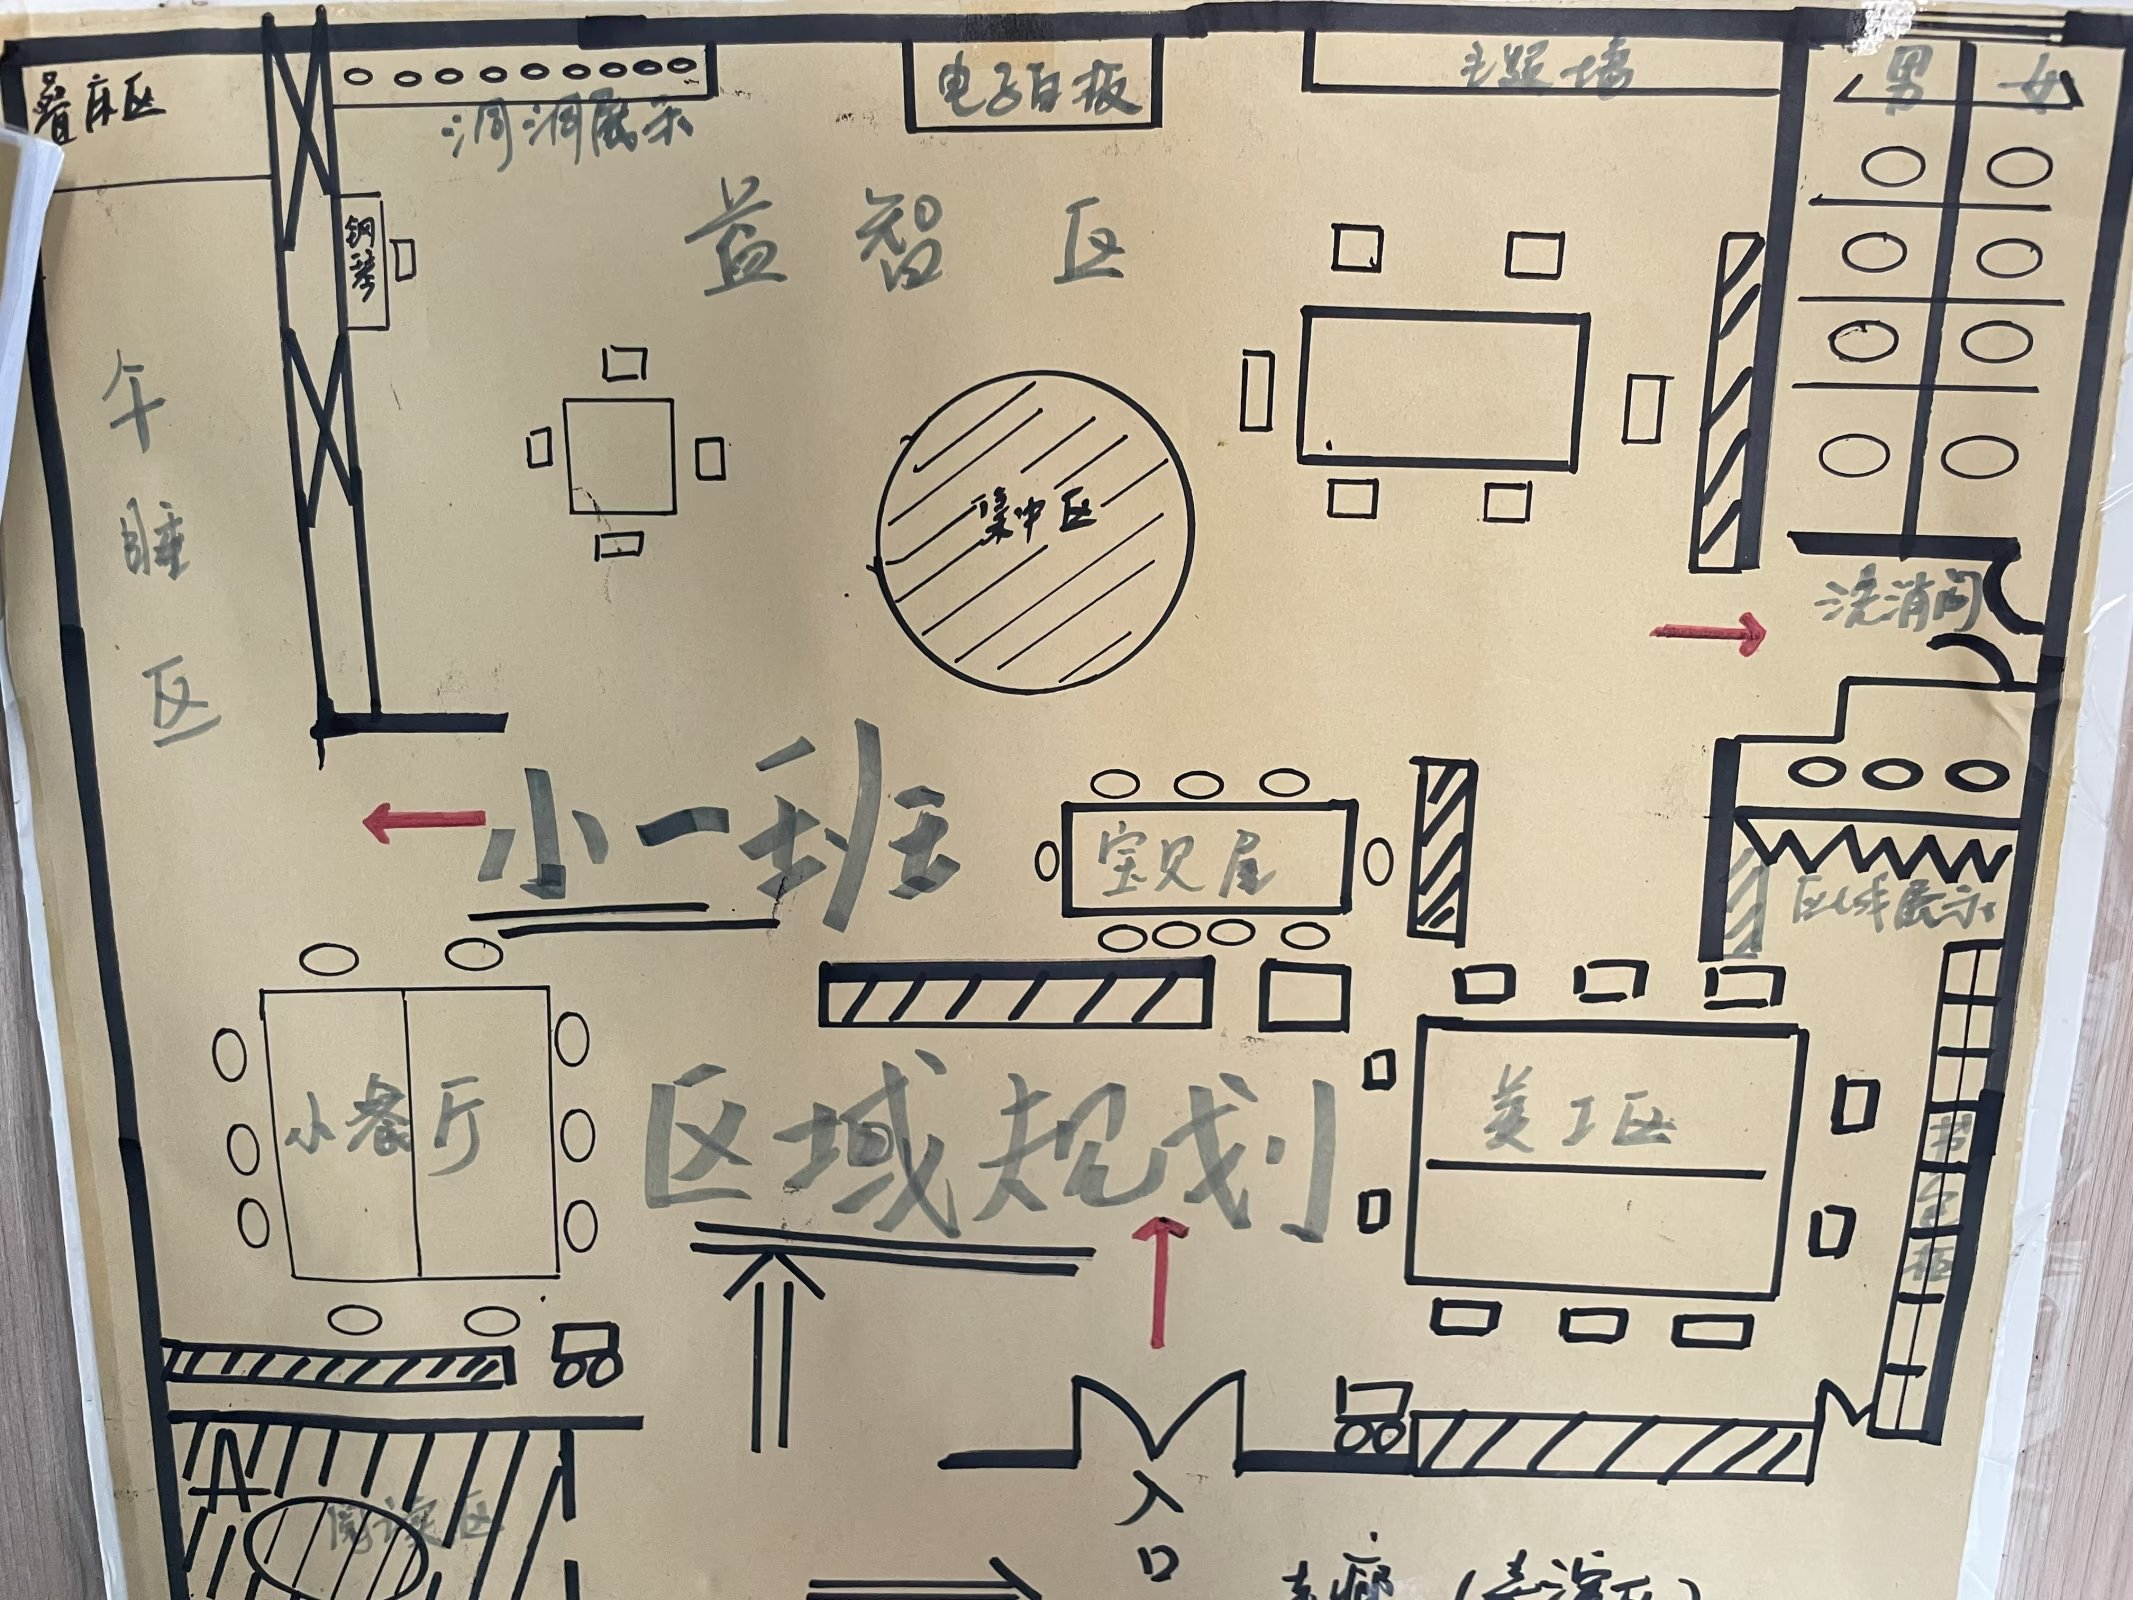 叠床区
洞洞展示
电子白板
主题墙
男
女
钢琴
益智区
午睡区
集中区
洗消间
小一班
宝贝屋
区域展示
小餐厅
区域规划
美工区
阅读区
入口
走廊(表演区)